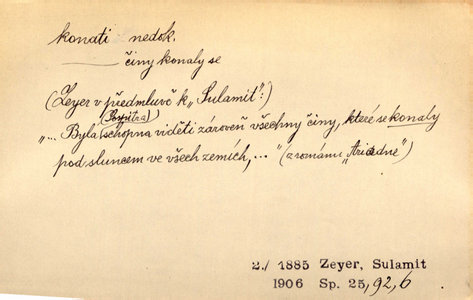 konati nedok.
činy konaly se
(Zeyer v předmluvě k „Sulamit“:)
„... Byla (Pospíra) schopna viděti zároveň všechny činy, které se konaly
pod sluncem ve všech zemích, ...“ (z románu „Ariadné“)
2./ 1885 Zeyer, Sulamit
1906 Sp. 25, 92, 6